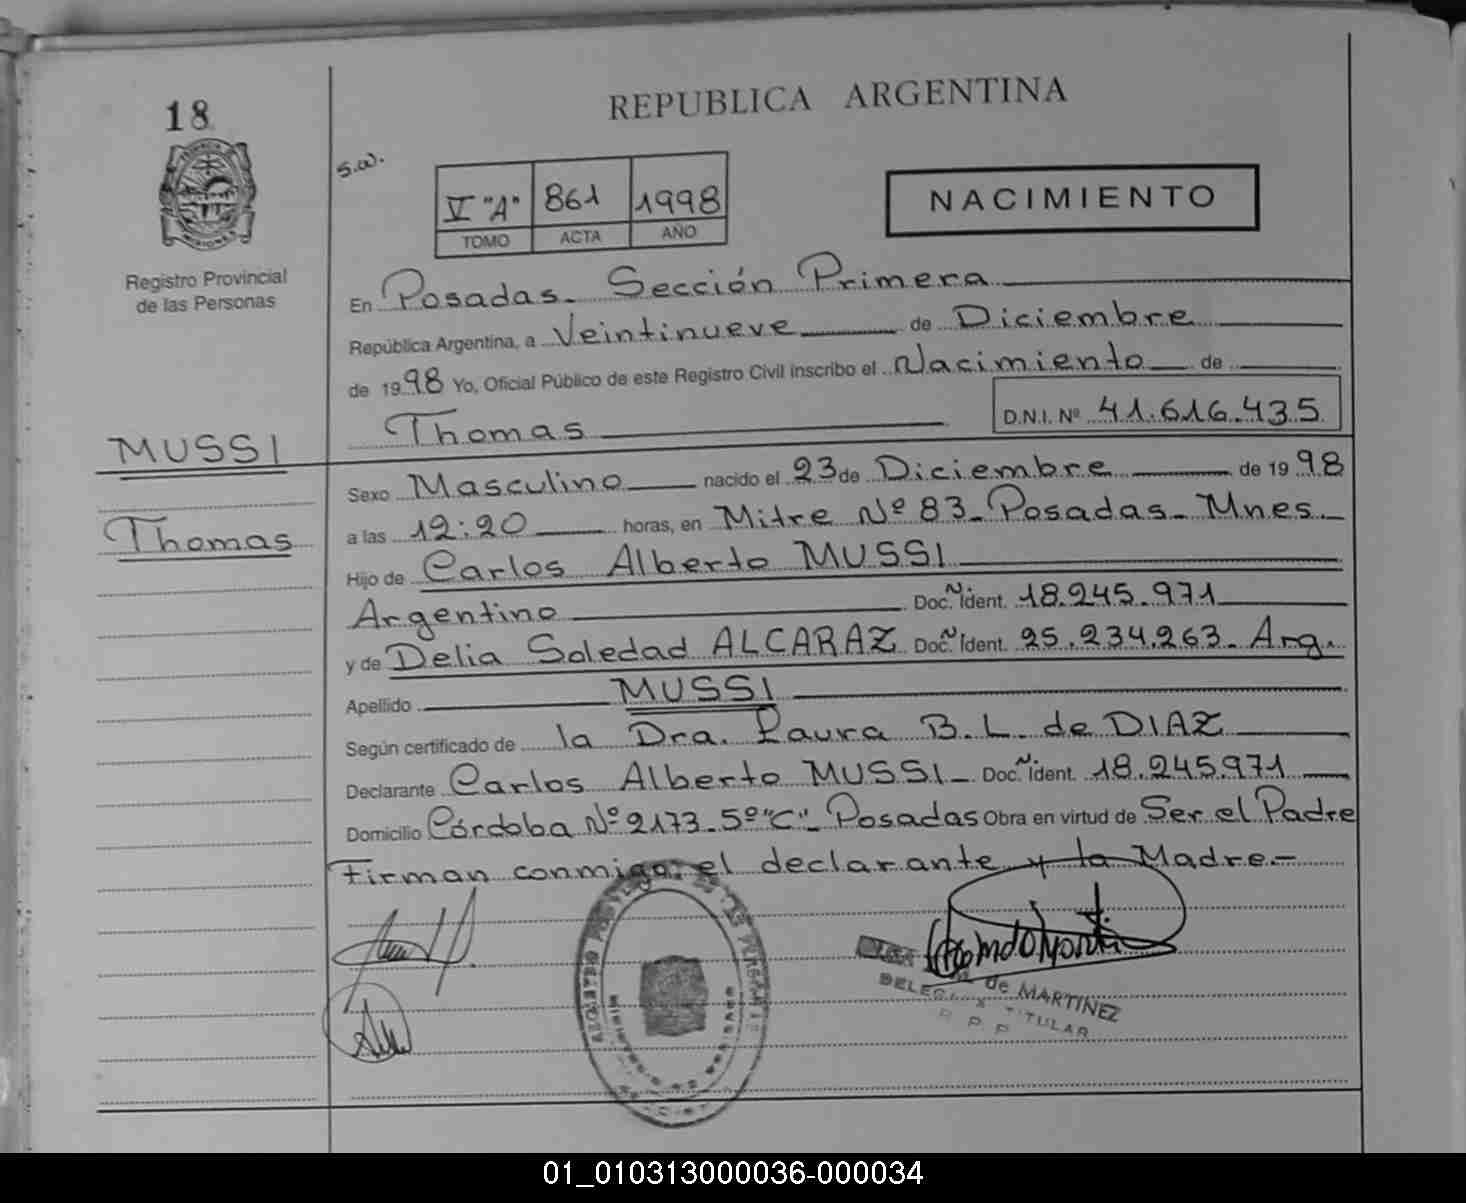 18
REPUBLICA ARGENTINA
s.w.
V "A" 861 1998
TOMO ACTA AÑO
NACIMIENTO
Registro Provincial
de las Personas
En Posadas. Sección Primera
República Argentina, a Veintinueve de Diciembre
de 1998 Yo, Oficial Público de este Registro Civil inscribo el Nacimiento de
Thomas D.N.I. Nº 41.616.435
MUSSI
Thomas
Sexo Masculino nacido el 23 de Diciembre de 1998
a las 12:20 horas, en Mitre Nº 83 - Posadas - Mnes.
Hijo de Carlos Alberto MUSSI
Argentino Doc. Ident. 18.245.971
y de Delia Soledad ALCARAZ Doc. Ident. 25.234.263 - Arg.
Apellido MUSSI
Según certificado de la Dra. Laura B. L. de DIAZ
Declarante Carlos Alberto MUSSI - Doc. Ident. 18.245.971
Domicilio Córdoba Nº 2173 - 5º "C" - Posadas Obra en virtud de Ser el Padre
Firman conmigo: el declarante y la Madre.-
de MARTINEZ
TITULAR
01_010313000036-000034